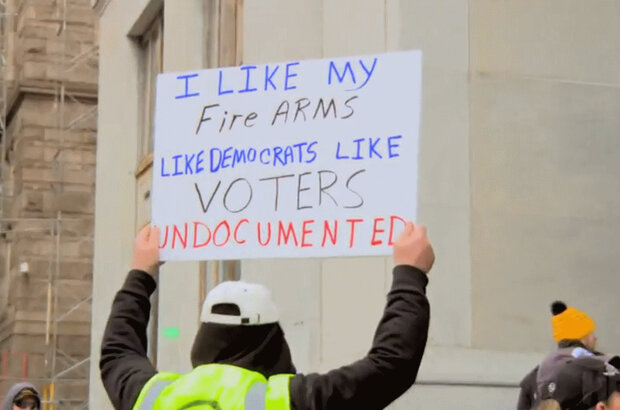 I LIKE MY
Fire ARMS
LIKE DEMOCRATS LIKE
VOTERS
UNDOCUMENTED